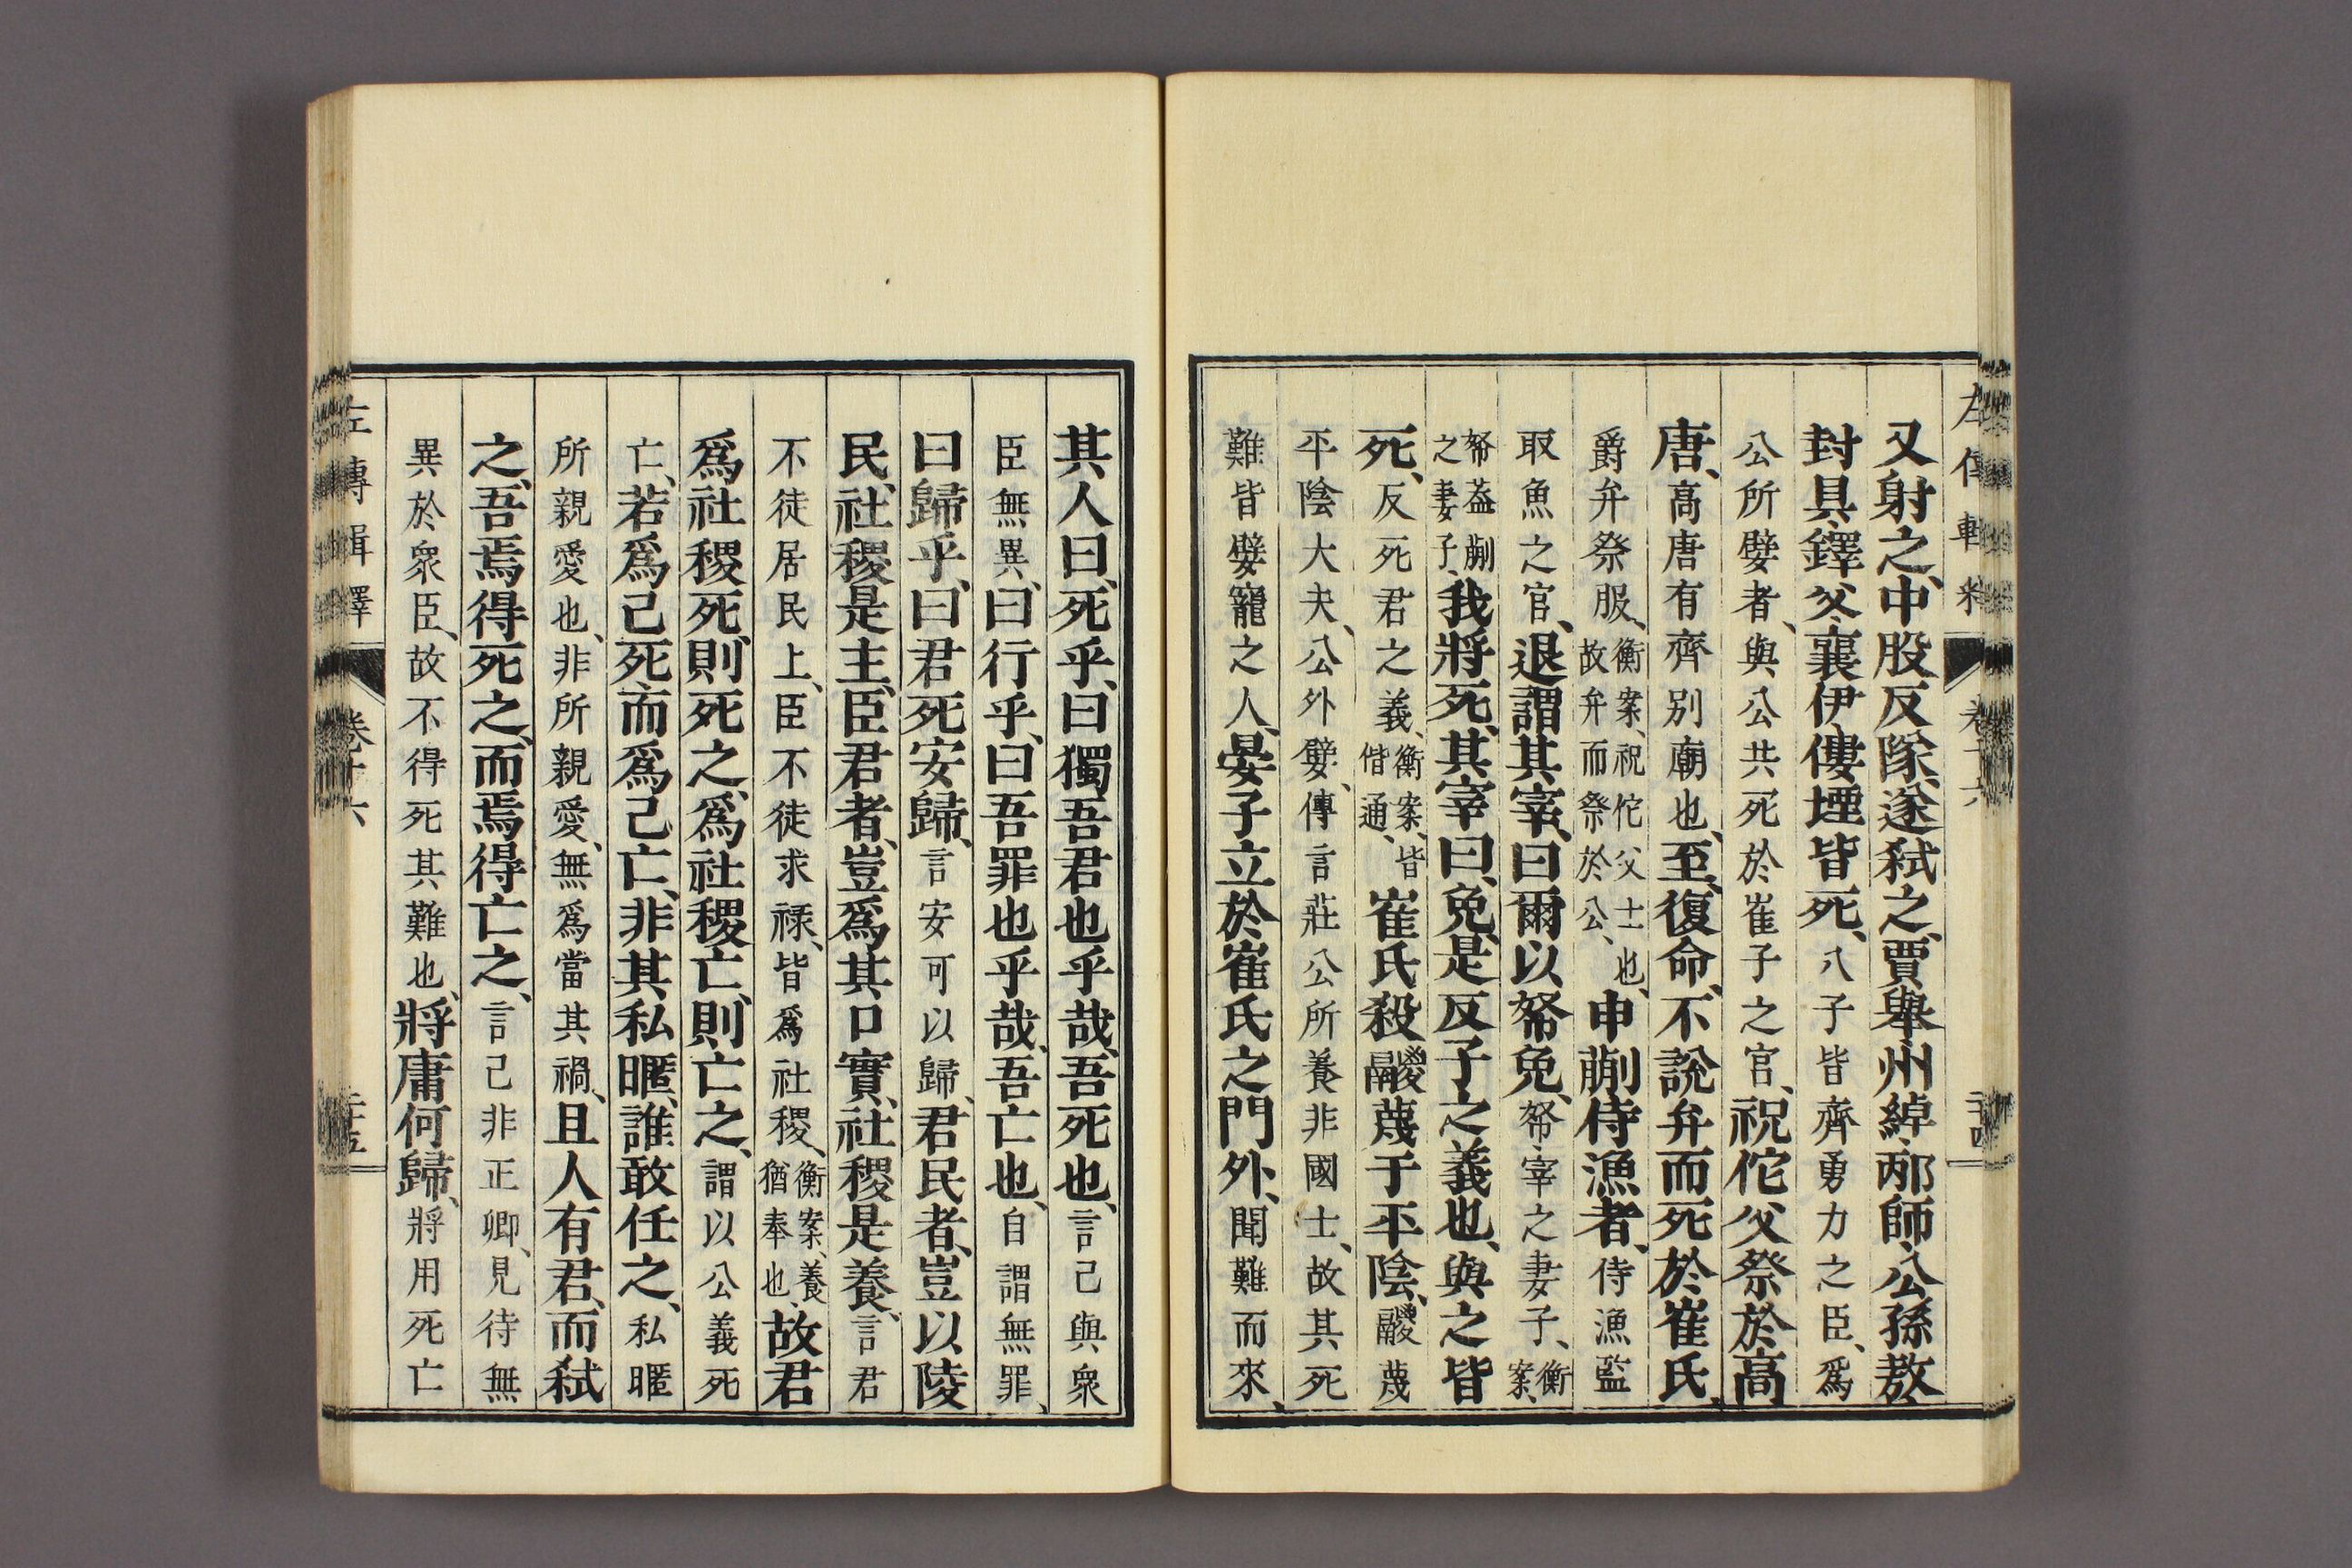 又射之、中股反隊、遂弑之、賈舉、州綽、邴師、公孫敖、
封具、鐸父、襄伊、僂堙皆死、八子皆齊勇力之臣、爲
公所嬖者、與公共死於崔子之宮、祝佗父祭於高
唐、高唐有齊別廟也、至、復命、不說弁而死於崔氏、
爵弁祭服、衡案、祝佗父士也、故弁而祭於公、申蒯侍漁者、侍漁監
取魚之官、退謂其宰、曰爾以帑免、帑、宰之妻子、衡案、
帑蓋蒯之妻子、我將死、其宰曰、免、是反子之義也、與之皆
死、反死君之義、衡案、皆偕通、崔氏殺鬷蔑于平陰、鬷蔑
平陰大夫、公外嬖、傳言莊公所養非國士、故其死
難皆嬖寵之人、晏子立於崔氏之門外、聞難而來、
其人曰、死乎、曰獨吾君也乎哉、吾死也、言己與衆
臣無異、曰行乎、曰吾罪也乎哉、吾亡也、自謂無罪、
曰歸乎、曰君死安歸、言安可以歸、君民者、豈以陵
民、社稷是主、臣君者、豈爲其口實、社稷是養、言君
不徒居民上、臣不徒求祿、皆爲社稷、衡案、養猶奉也、故君
爲社稷死、則死之、爲社稷亡、則亡之、謂以公義死
亡、若爲己死、而爲己亡、非其私暱、誰敢任之、私暱
所親愛也、非所親愛、無爲當其禍、且人有君、而弑
之、吾焉得死之、而焉得亡之、言己非正卿、見待無
異於衆臣、故不得死其難也、將庸何歸、將用死亡
左傳輯釋 卷十六 二十五